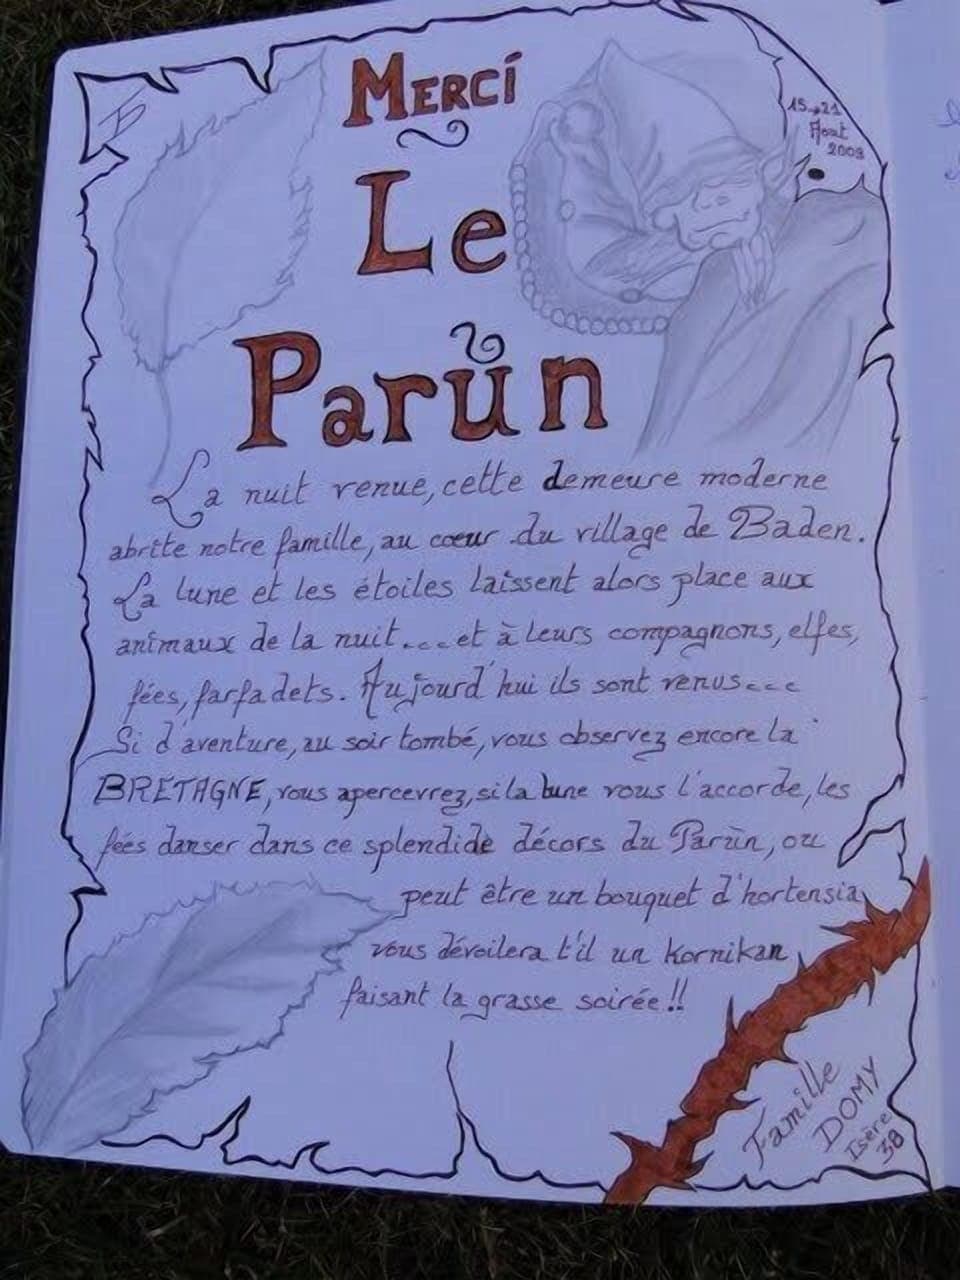 MERCI
15→21
Août
2009
Le
Parùn
La nuit venue, cette demeure moderne
abrite notre famille, au coeur du village de Baden.
La lune et les étoiles laissent alors place aux
animaux de la nuit... et à leurs compagnons, elfes,
fées, farfadets. Aujourd'hui ils sont venus...
Si d'aventure, au soir tombé, vous observez encore la
BRETAGNE, vous apercevrez, si la lune vous l'accorde, les
fées danser dans ce splendide décors du Parùn, ou
peut être un bouquet d'hortensia
vous dévoilera t'il un kornikan
faisant la grasse soirée!!
Famille
DOMY
Isère
38